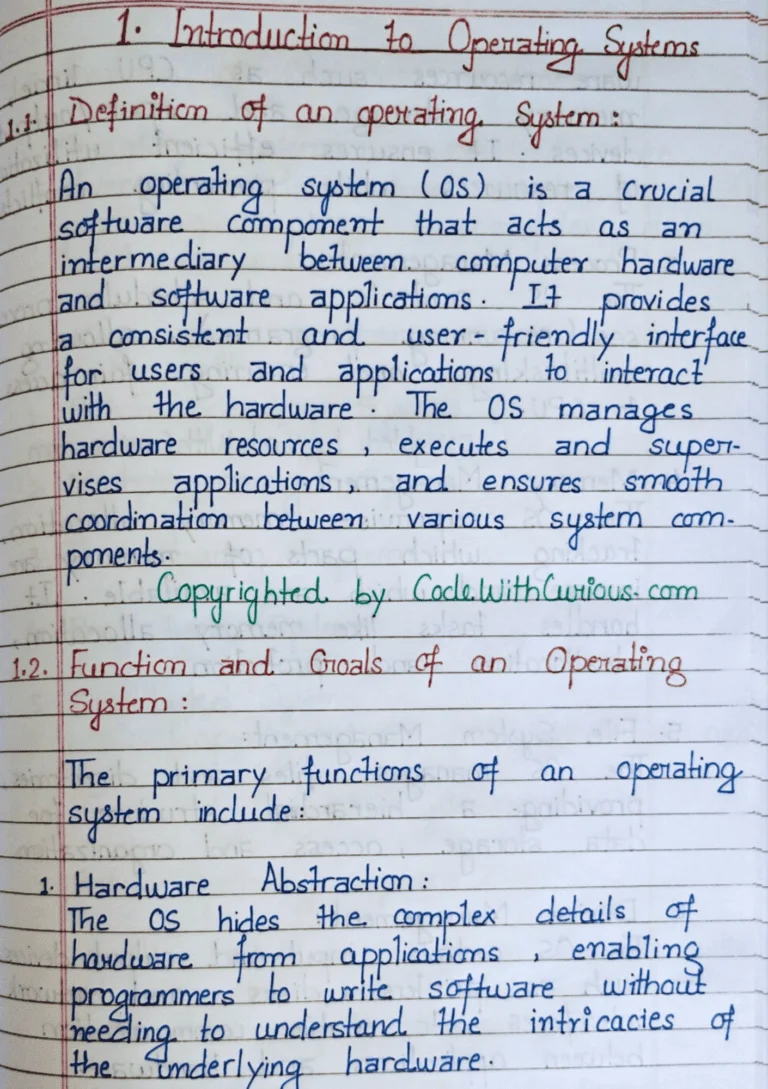 1. Introduction to Operating Systems
1.1. Definition of an operating System:
An operating system (OS) is a crucial
software component that acts as an
intermediary between computer hardware
and software applications. It provides
a consistent and user-friendly interface
for users and applications to interact
with the hardware. The OS manages
hardware resources, executes and super-
vises applications, and ensures smooth
coordination between various system com-
ponents.
Copyrighted by CodeWithCurious.com
1.2. Function and Goals of an Operating
System:
The primary functions of an operating
system include:
1. Hardware Abstraction:
The OS hides the complex details of
hardware from applications, enabling
programmers to write software without
needing to understand the intricacies of
the underlying hardware.